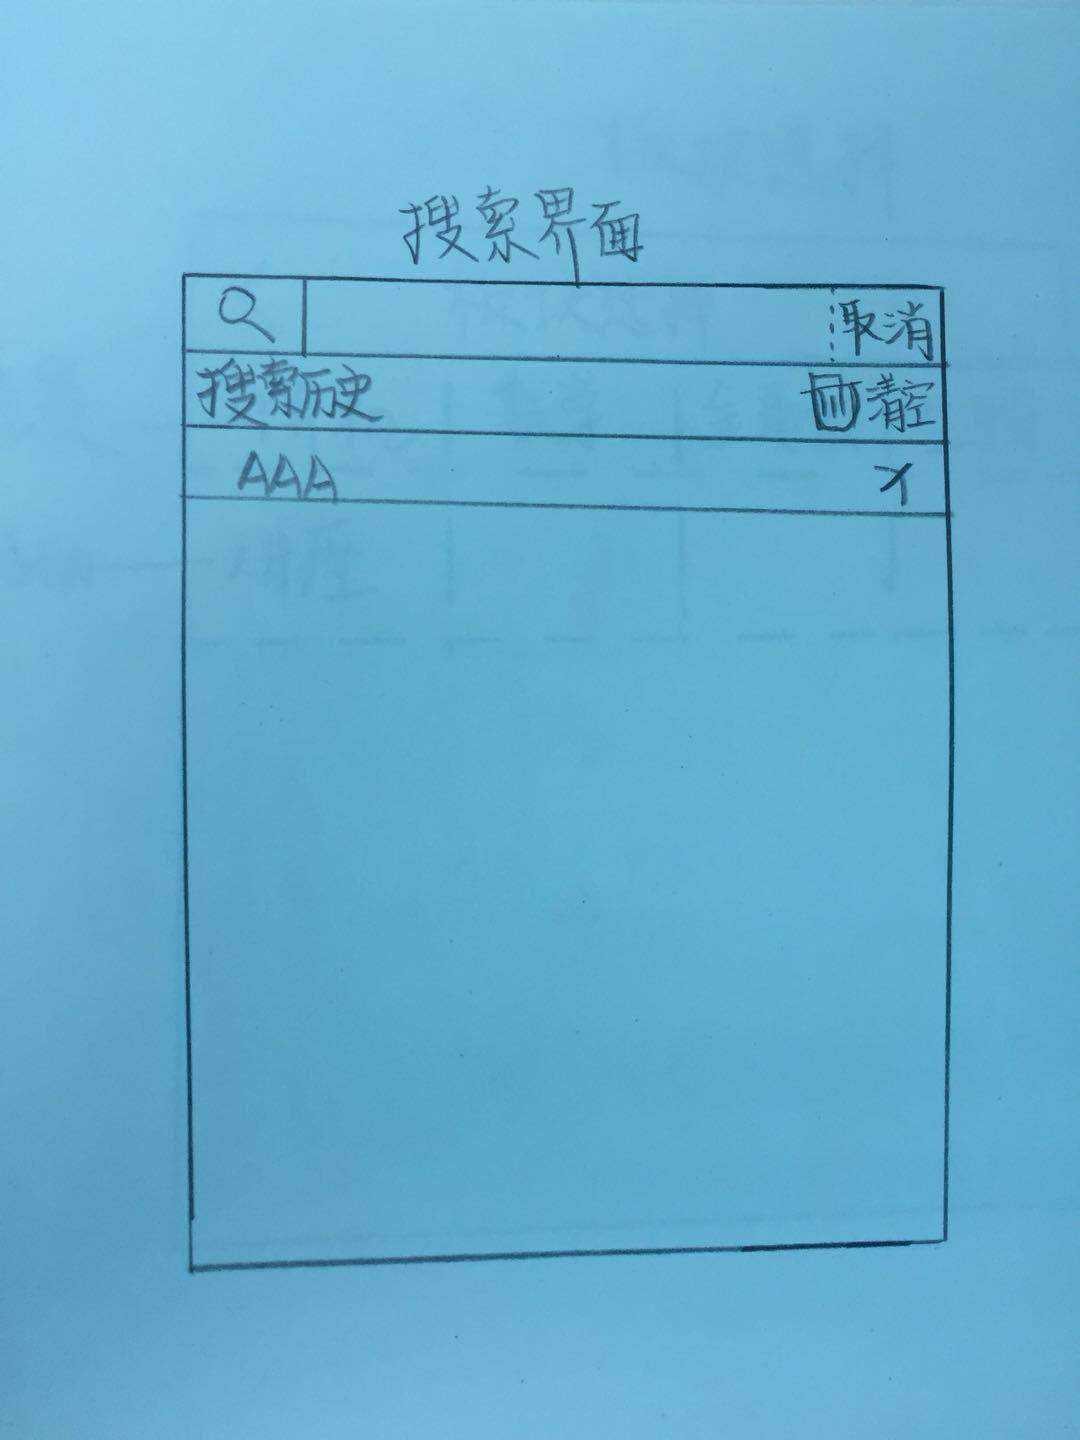 搜索界面
取消
搜索历史 清空
AAA X